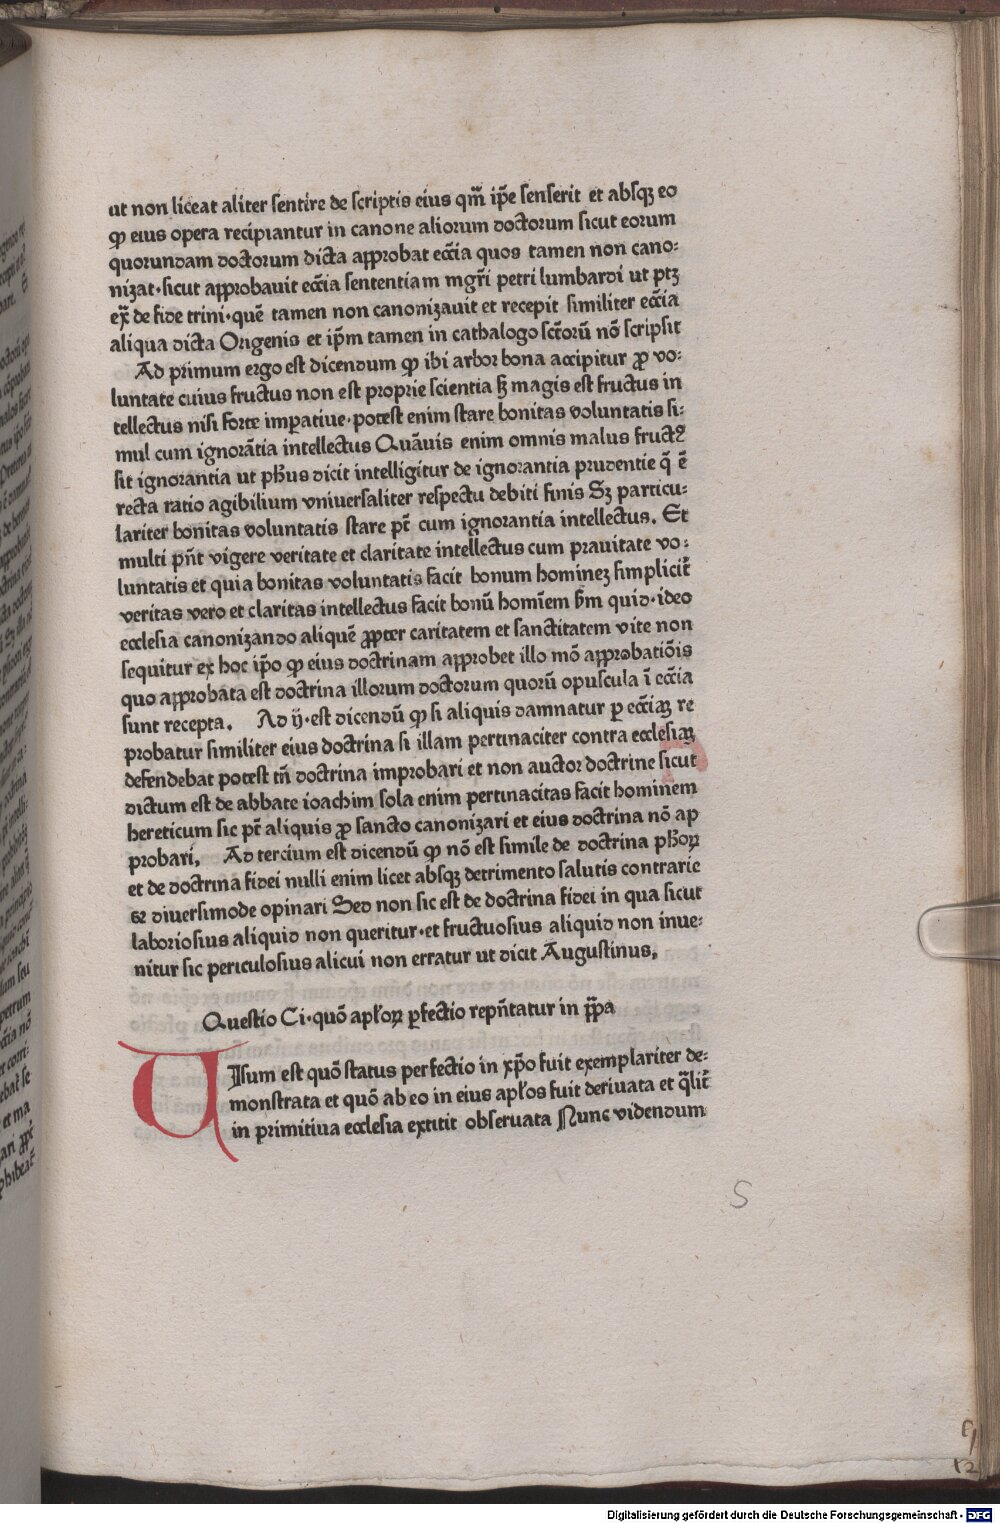 ut non liceat aliter sentire de scriptis eius qm̄ ip̄e senserit et absqꝫ eo
ꝙ eius opera recipiantur in canone aliorum doctorum sicut eorum
quorundam doctorum dicta approbat ecc̄ia quos tamen non cano:
nizat·sicut approbauit ecc̄ia sententiam mgr̄i petri lumbardi ut ptꝫ
ex̄ de fide trini·quē tamen non canonizauit et recepit similiter ecc̄ia
aliqua dicta Origenis et ip̄m tamen in cathalogo sc̄torū nō scripsit
Ad primum ergo est dicendum ꝙ ibi arbor bona accipitur ꝓ vo:
luntate cuius fructus non est proprie scientia sꝫ magis est fructus in
tellectus nisi forte impatiue·potest enim stare bonitas voluntatis si:
mul cum ignorātia intellectus Quāuis enim omnis malus fructꝰ
sit ignorantia ut ph̄us dicit intelligitur de ignorantia prudentie q̄ ē
recta ratio agibilium vniuersaliter respectu debiti finis Sꝫ particu:
lariter bonitas voluntatis stare pt̄ cum ignorantia intellectus. Et
multi pn̄t vigere veritate et claritate intellectus cum prauitate vo:
luntatis et quia bonitas voluntatis facit bonum homineꝫ simplicit̄
veritas vero et claritas intellectus facit bonū homīem s̄m quid·ideo
ecclesia canonizando aliquē ꝓpter caritatem et sanctitatem vite non
sequitur ex hoc ip̄o ꝙ eius doctrinam approbet illo mō approbatiōis
quo approbata est doctrina illorum doctorum quorū opuscula ī ecc̄ia
sunt recepta. Ad ij·est dicendū ꝙ si aliquis damnatur ꝑ ecc̄iaꝫ re
probatur similiter eius doctrina si illam pertinaciter contra ecclesiaꝫ
defendebat potest tn̄ doctrina improbari et non auctor doctrine sicut
dictum est de abbate ioachim sola enim pertinacitas facit hominem
hereticum sic pt̄ aliquis ꝓ sancto canonizari et eius doctrina nō ap
probari. Ad tercium est dicendū ꝙ nō est simile de doctrina ph̄oꝝ
et de doctrina fidei nulli enim licet absqꝫ detrimento salutis contrarie
uꝫ diuersimode opinari Sed non sic est de doctrina fidei in qua sicut
laboriosius aliquid non queritur·et fructuosius aliquid non inue:
nitur sic periculosius alicui non erratur ut dicit Augustinus.
Questio Ci·quō apl̄oꝝ ꝑfectio repn̄tatur in ꝓ̄pa
UIsum est quō status perfectio in xp̄o fuit exemplariter de:
monstrata et quō ab eo in eius apl̄os fuit deriuata et q̄lit̄
in primitiua ecclesia extitit obseruata Nunc videndum
S
12
Digitalisierung gefördert durch die Deutsche Forschungsgemeinschaft - DFG